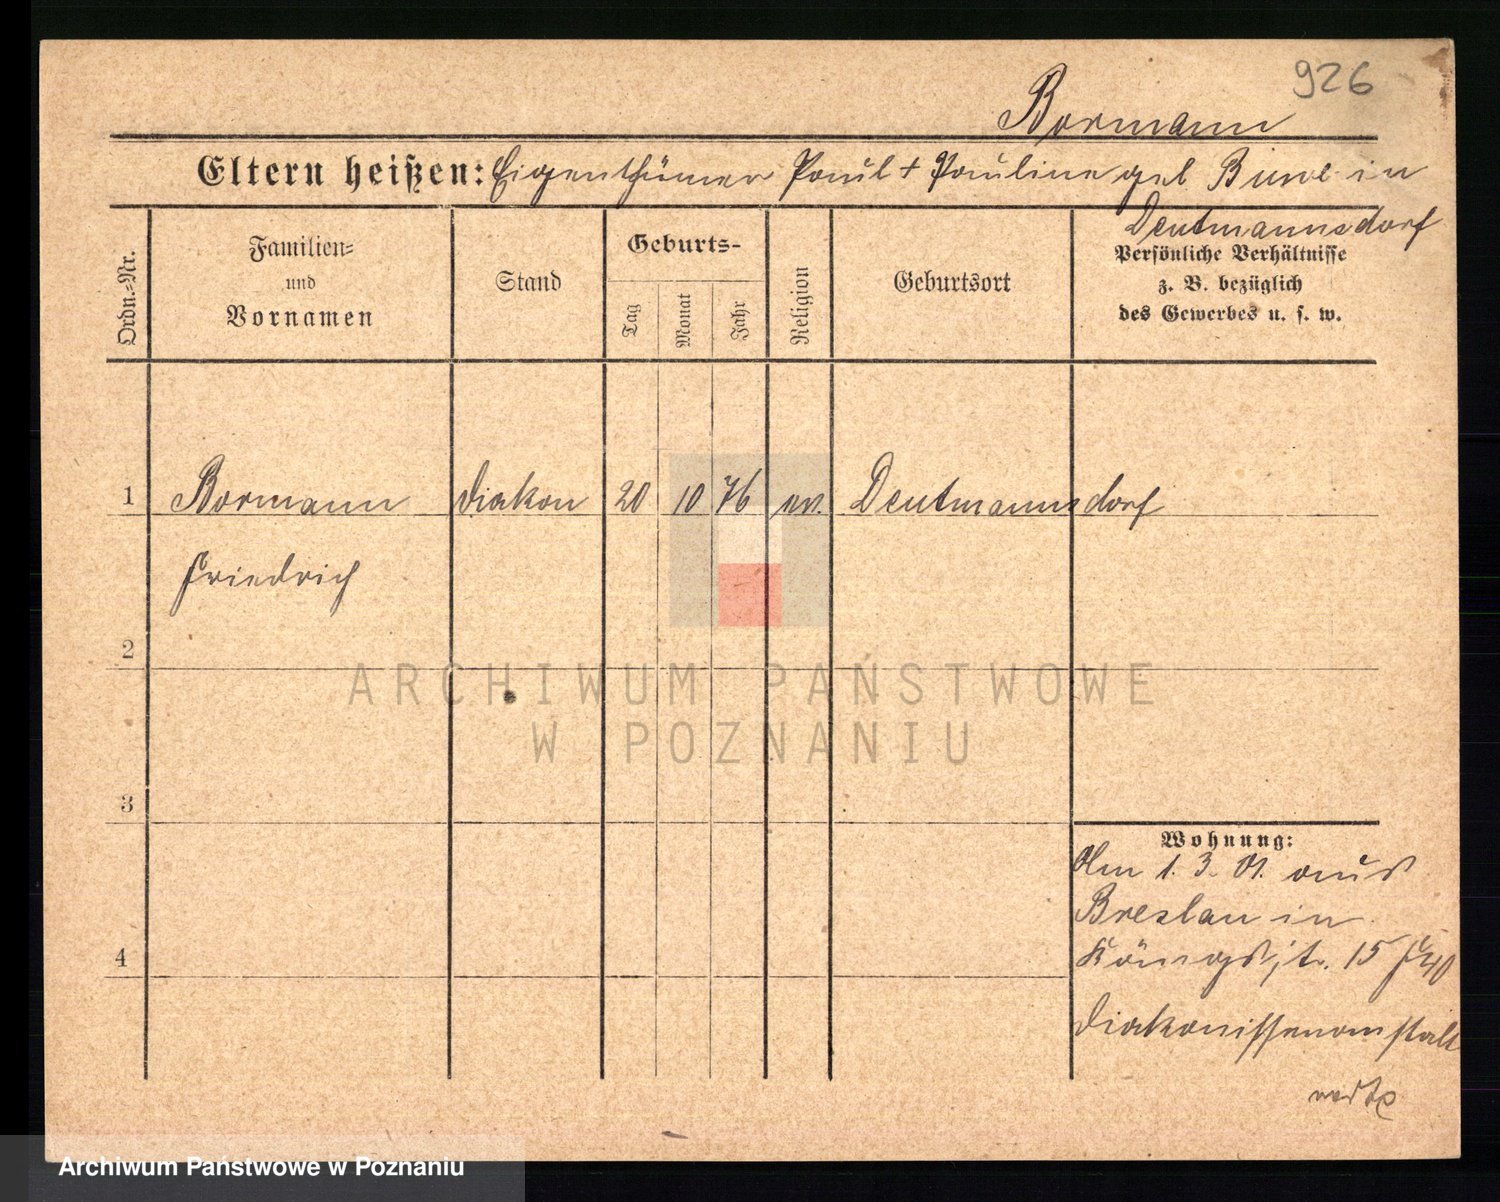 926
Bormann
Eltern heißen: Eigenthümer Paul + Pauline geb in
Deutmannsdorf
Ordn.-Nr.
Familien-
und
Vornamen
Stand
Geburts-
Tag
Monat
Jahr
Religion
Geburtsort
Persönliche Verhältnisse
z. B. bezüglich
des Gewerbes u. s. w.
1 Bormann Diakon 20 10 76 ev. Deutmannsdorf
Friedrich
2
3
4
Wohnung:
Am 1. 3. 01. aus
Breslau in
Königstr. 15
Diakonissenanstalt
ARCHIWUM PAŃSTWOWE
W POZNANIU
Archiwum Państwowe w Poznaniu